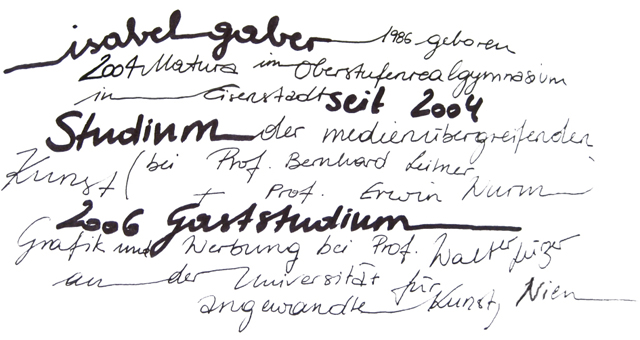 isabel gaber 1986 geboren
2004 Matura im Oberstufenrealgymnasium
in Eisenstadt seit 2004
Studium der medienübergreifenden
Kunst (bei Prof. Bernhard Leitner
+ Prof. Erwin Wurm
2006 Gaststudium
Grafik und Werbung bei Prof. Walter
an der Universität für
angewandte Kunst, Wien